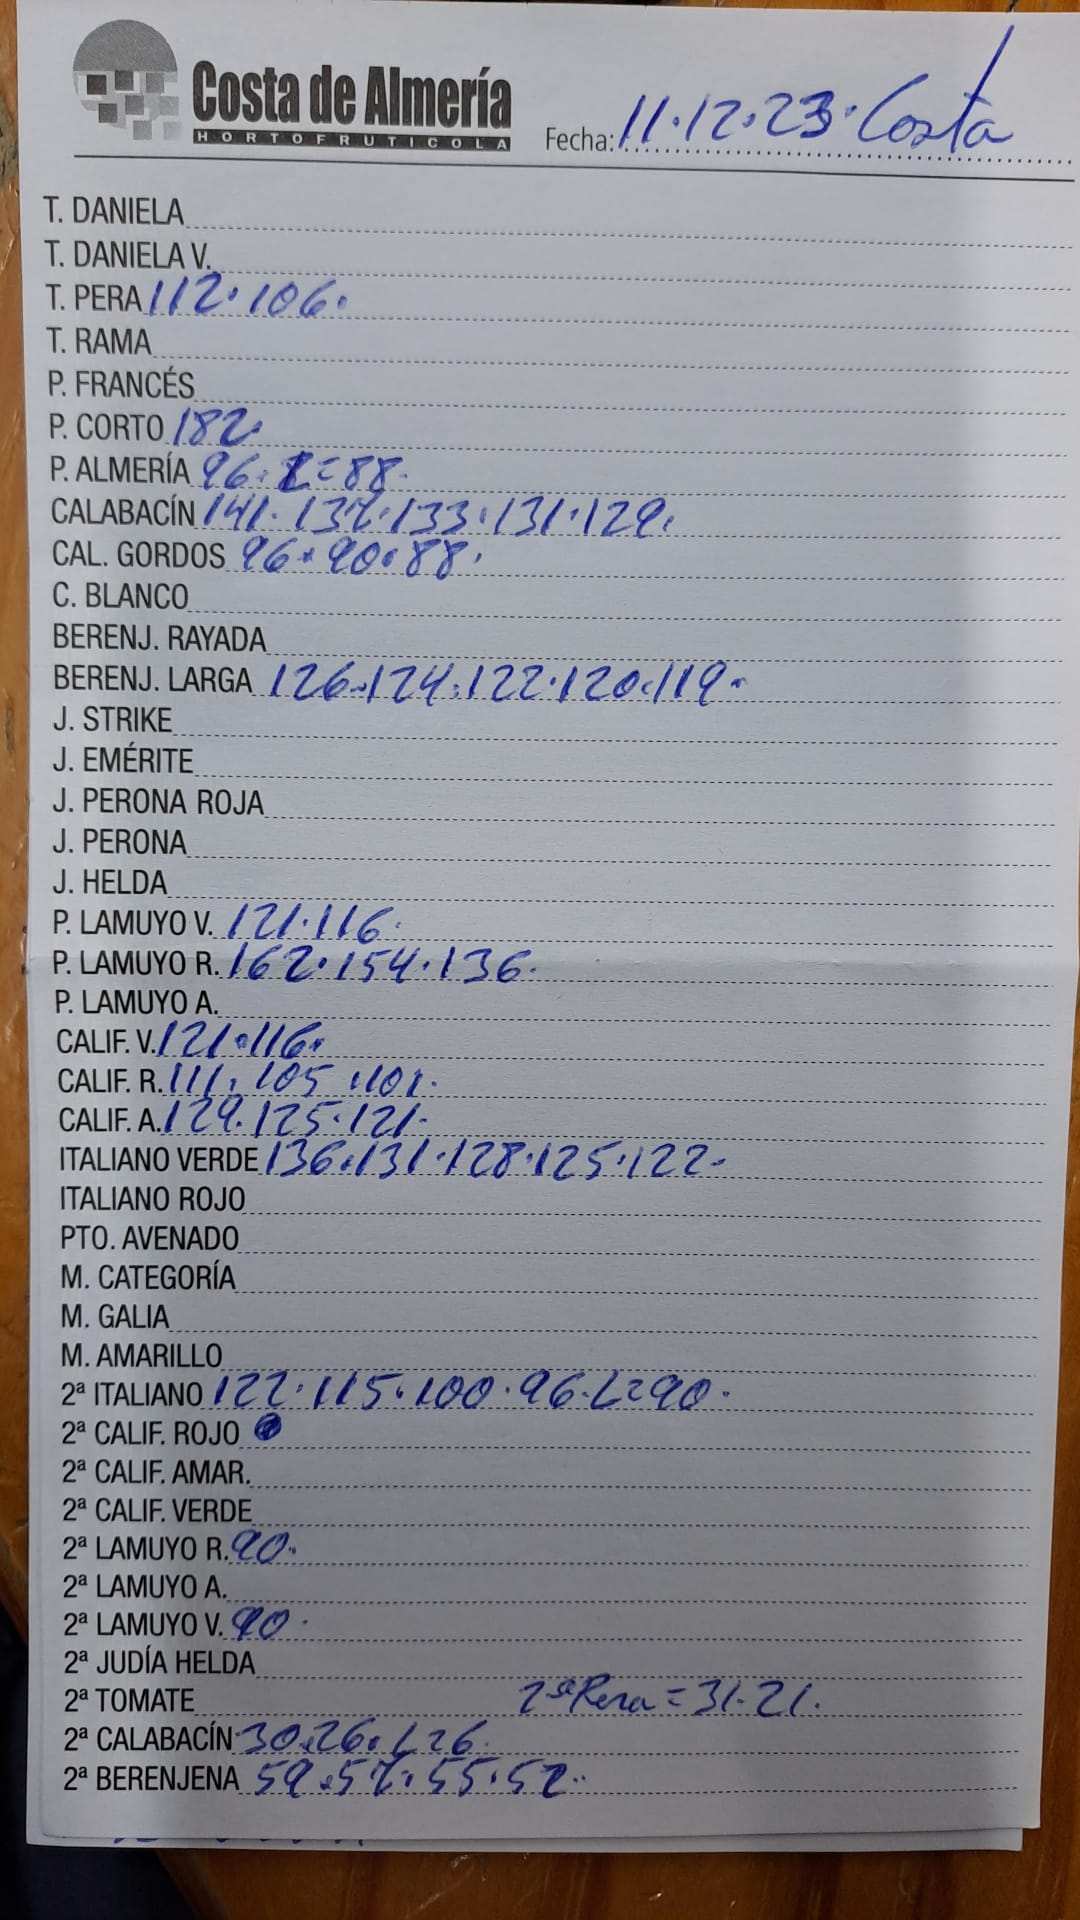 Costa de Almería
HORTOFRUTICOLA
Fecha: 11.12.23. Costa
T. DANIELA
T. DANIELA V.
T. PERA 112. 106.
T. RAMA
P. FRANCÉS
P. CORTO 182.
P. ALMERÍA 96. L=88.
CALABACÍN 141. 137. 133. 131. 129.
CAL. GORDOS 96. 90. 88.
C. BLANCO
BERENJ. RAYADA
BERENJ. LARGA 126. 124. 122. 120. 119.
J. STRIKE
J. EMÉRITE
J. PERONA ROJA
J. PERONA
J. HELDA
P. LAMUYO V. 121. 116.
P. LAMUYO R. 162. 154. 136.
P. LAMUYO A.
CALIF. V. 121. 116.
CALIF. R. 111. 105. 101.
CALIF. A. 129. 125. 121.
ITALIANO VERDE 136. 131. 128. 125. 122.
ITALIANO ROJO
PTO. AVENADO
M. CATEGORÍA
M. GALIA
M. AMARILLO
2ª ITALIANO 122. 115. 100. 96. L=90.
2ª CALIF. ROJO
2ª CALIF. AMAR.
2ª CALIF. VERDE
2ª LAMUYO R. 90.
2ª LAMUYO A.
2ª LAMUYO V. 90.
2ª JUDÍA HELDA
2ª TOMATE 2ª Pera = 31. 21.
2ª CALABACÍN 30. 26. L 26.
2ª BERENJENA 59. 57. 55. 52.